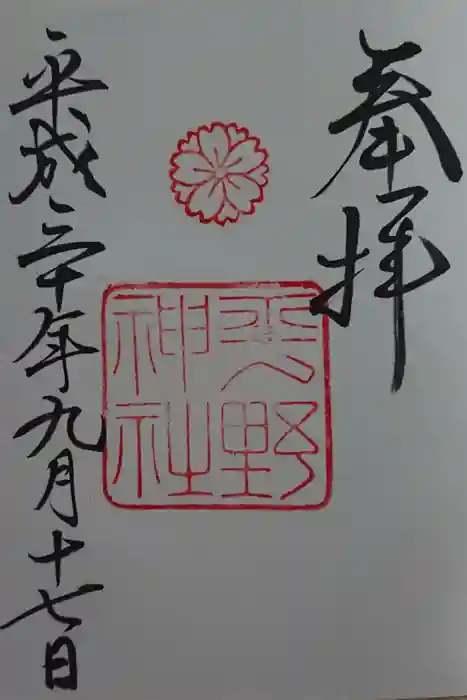 奉拝
平野神社
平成三十年九月十七日